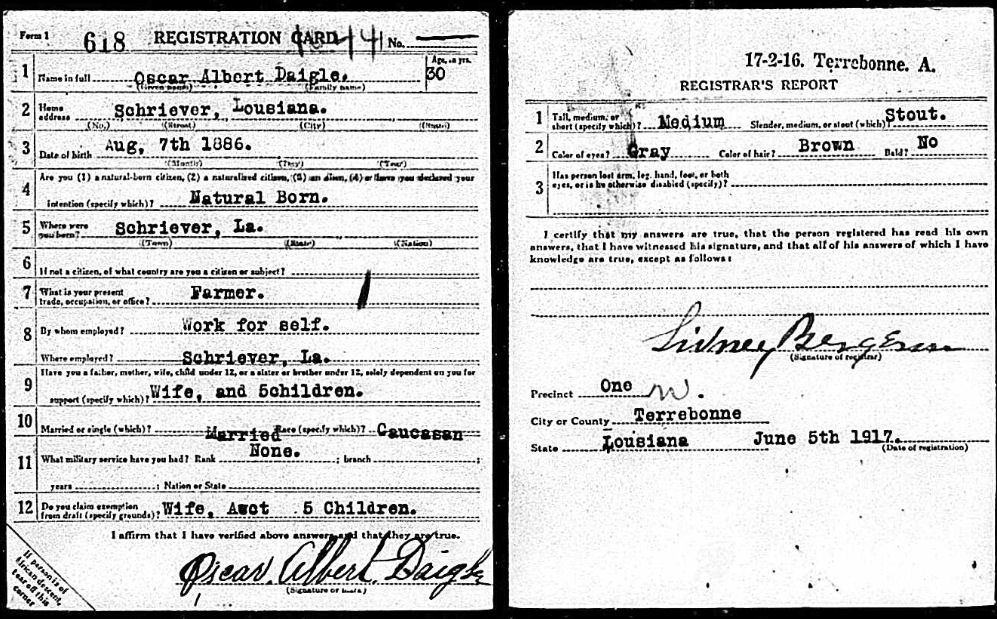 Form 1 618 REGISTRATION CARD 1441 No.
1 Name in full Oscar Albert Daigle. Age, in yrs. 30
(Given name) (Family name)
2 Home address Schriever, Lousiana.
(No.) (Street) (City) (State)
3 Date of birth Aug, 7th 1886.
(Month) (Day) (Year)
4 Are you (1) a natural-born citizen, (2) a naturalized citizen, (3) an alien, (4) or have you declared your
intention (specify which)? Natural Born.
5 Where were you born? Schriever, La.
(Town) (State) (Nation)
6 If not a citizen, of what country are you a citizen or subject?
7 What is your present trade, occupation, or office? Farmer.
8 By whom employed? Work for self.
Where employed? Schriever, La.
9 Have you a father, mother, wife, child under 12, or a sister or brother under 12, solely dependent on you for
support (specify which)? Wife, and 5children.
10 Married or single (which)? Married Race (specify which)? Caucasan
11 What military service have you had? Rank None. ; branch ;
years ; Nation or State
12 Do you claim exemption from draft (specify grounds)? Wife, Awot 5 Children.
I affirm that I have verified above answers and that they are true.
Oscar Albert Daigle
(Signature or mark)
If person is of African descent, tear off this corner
17-2-16. Terrebonne. A.
REGISTRAR'S REPORT
1 Tall, medium, or short (specify which)? Medium Slender, medium, or stout (which) Stout.
2 Color of eyes? Gray Color of hair? Brown Bald? No
3 Has person lost arm, leg, hand, foot, or both
eyes, or is he otherwise disabled (specify)?
I certify that my answers are true, that the person registered has read his own
answers, that I have witnessed his signature, and that all of his answers of which I have
knowledge are true, except as follows:
Sidney Bergeron
(Signature of registrar)
Precinct One
City or County Terrebonne
State Lousiana June 5th 1917.
(Date of registration)